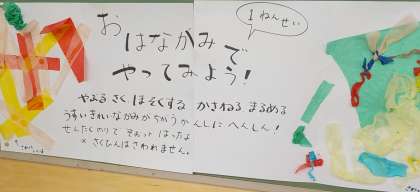 1ねんせい
おはなかみで
やってみよう!
やぶる さく ほそくする かさねる まるめる
うすい きれいな かみが ちがう かんじに へんしん!
せんたくのりで そおっと はったよ
× さくひんは さわれません。